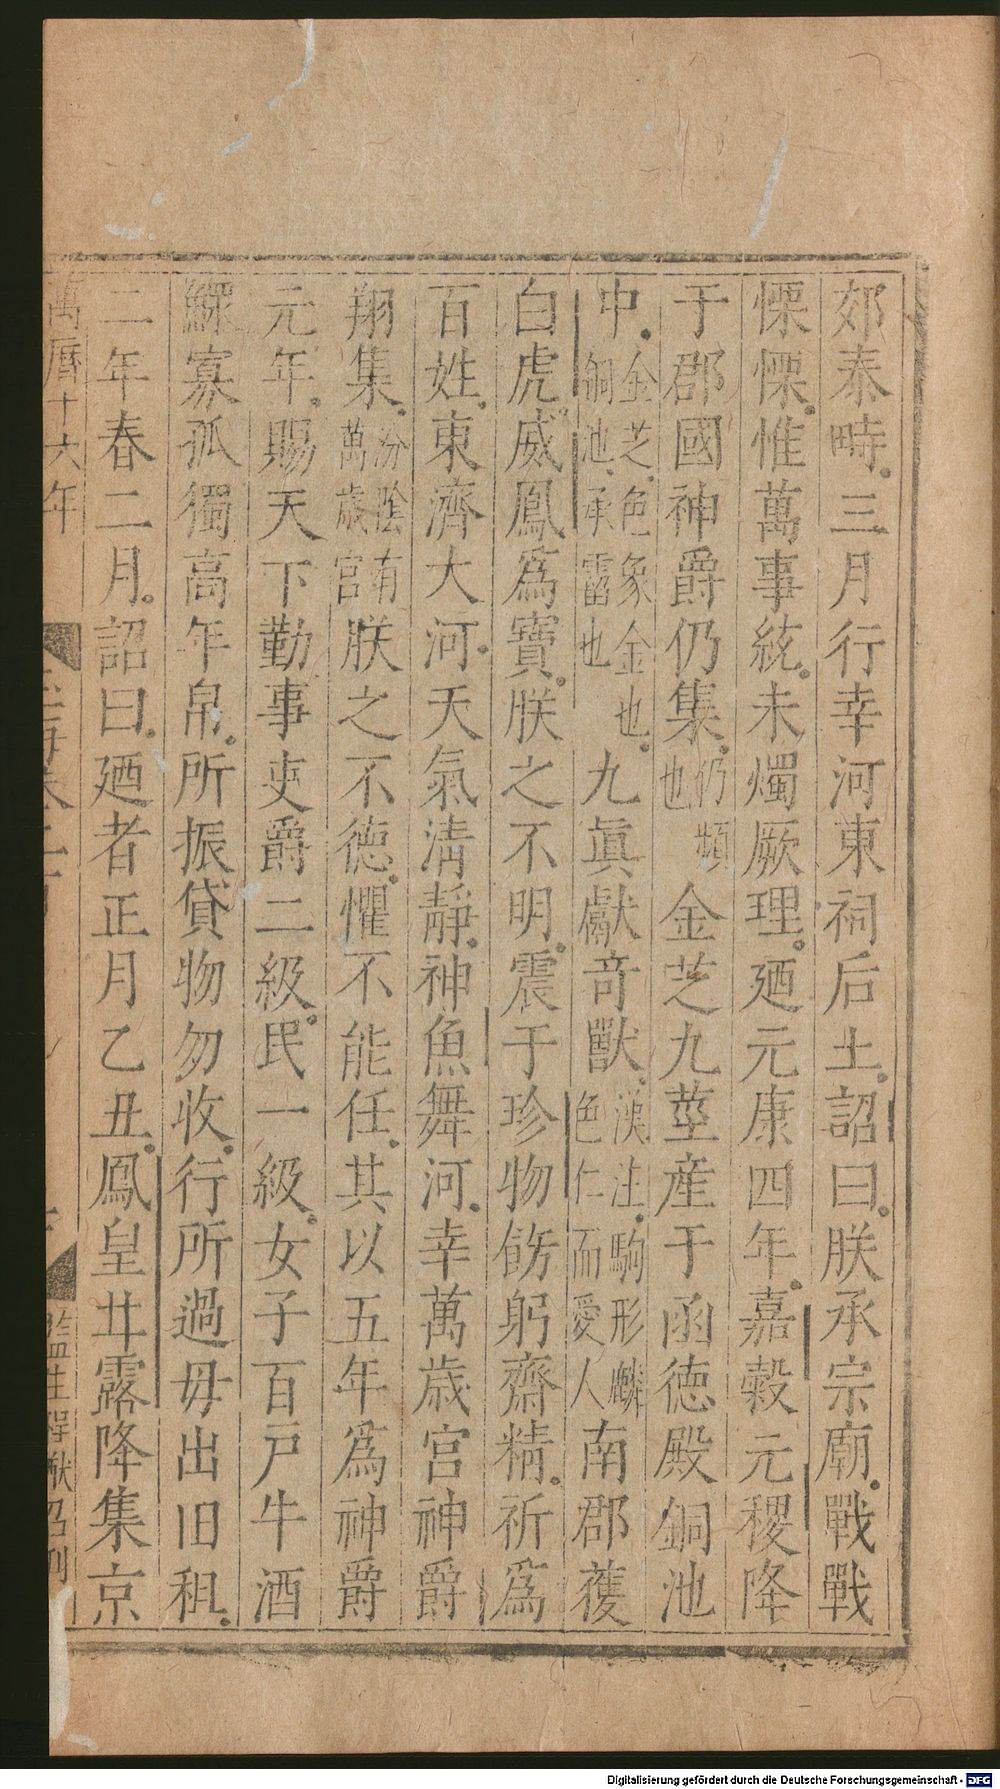 郊泰畤三月行幸河東祠后土詔曰朕承宗廟戰戰
慄慄惟萬事統未燭厥理廼元康四年嘉穀元稷降
于郡國神爵仍集仍頻也金芝九莖產于函德殿銅池
中金芝色象金也銅池承霤也九眞獻奇獸漢注駒形麟色仁而愛人南郡蒦
白虎威鳳爲寶朕之不明震于珍物飭躬齋精祈爲
百姓東濟大河天氣淸靜神魚舞河幸萬歲宮神爵
翔集汾陰有萬歲宮朕之不德懼不能任其以五年爲神爵
元年賜天下勤事吏爵二級民一級女子百戸牛酒
鰥寡孤獨高年帛所振貸物勿收行所過毋出旧租
二年春二月詔曰廼者正月乙丑鳳皇甘露降集京
萬曆十六年
監生
刊
Digitalisierung gefördert durch die Deutsche Forschungsgemeinschaft - DFG